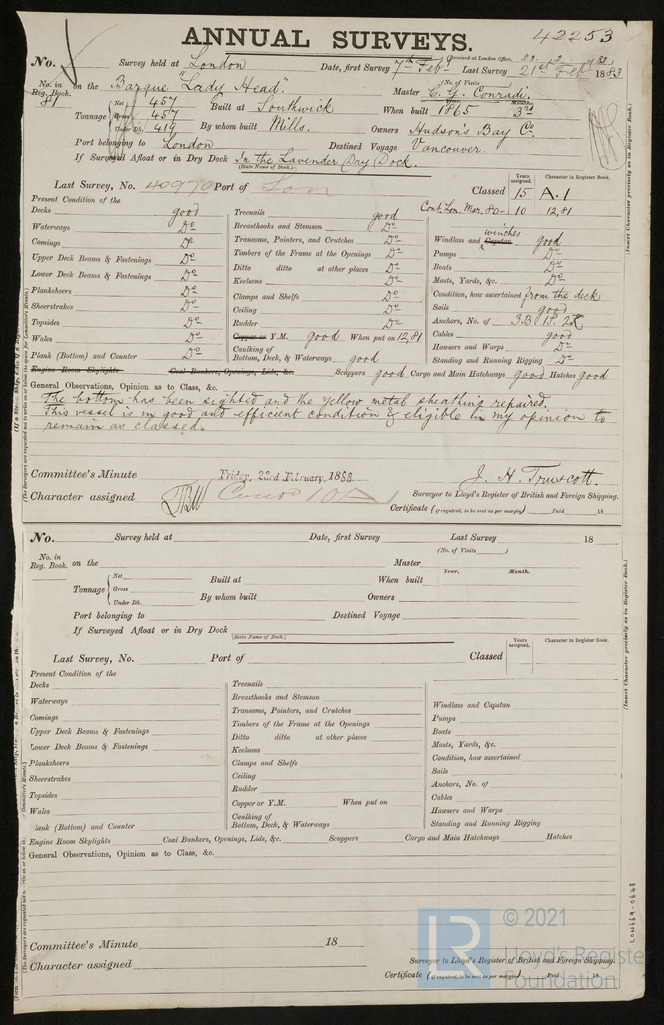 42253
ANNUAL SURVEYS.
No. Survey held at London Date, first Survey 7th Feb Last Survey 21st Feb 1883
Received at London Office,
(No. of Visits )
No. in Reg. Book. 81 on the Barque "Lady Head". Master C. G. Conradi.
Tonnage Net 457 Gross 457 Under Dk. 419
Built at Southwick When built Year. 1865 Month. 3rd
By whom built Mills. Owners Hudson's Bay Co.
Port belonging to London Destined Voyage Vancouver.
If Surveyed Afloat or in Dry Dock In the Lavender Dry Dock.
(State Name of Dock.)
Years assigned. Character in Register Book.
Last Survey, No. 40970 Port of Lon Classed 15 A.1
Cont. Lon. Mar. 80 - 10 12,81
Present Condition of the
Decks good
Waterways Do
Comings Do
Upper Deck Beams & Fastenings Do
Lower Deck Beams & Fastenings Do
Planksheers Do
Sheerstrakes Do
Topsides Do
Wales Do
Plank (Bottom) and Counter Do
Treenails good
Breasthooks and Stemson Do
Transoms, Pointers, and Crutches Do
Timbers of the Frame at the Openings Do
Ditto ditto at other places Do
Keelsons Do
Clamps and Shelfs Do
Ceiling Do
Rudder Do
Copper or Y.M. good When put on 12,81
Caulking of Bottom, Deck, & Waterways good
winches
Windlass and Capstan good
Pumps Do
Boats Do
Masts, Yards, &c. Do
Condition, how ascertained from the deck
Sails good
Anchors, No. of 3.B 1S. 2K
Cables good
Hawsers and Warps Do
Standing and Running Rigging Do
Engine Room Skylights Coal Bunkers, Openings, Lids, &c. Scuppers good Cargo and Main Hatchways good Hatches good
General Observations, Opinion as to Class, &c.
The bottom has been sighted and the yellow metal sheathing repaired.
This vessel is in good and efficient condition & eligible in my opinion to
remain as classed.
Committee's Minute Friday, 23rd February, 1883.
J. H. Truscott.
Character assigned
Surveyor to Lloyd's Register of British and Foreign Shipping.
Certificate (if required, to be sent as per margin) Paid 18
(Insert Character precisely as in Register Book.)
No. Survey held at Date, first Survey Last Survey 18
(No. of Visits )
No. in Reg. Book. on the Master
Tonnage Net Gross Under Dk.
Built at When built Year. Month.
By whom built Owners
Port belonging to Destined Voyage
If Surveyed Afloat or in Dry Dock
(State Name of Dock.)
Years assigned. Character in Register Book.
Last Survey, No. Port of Classed
Present Condition of the
Decks
Waterways
Comings
Upper Deck Beams & Fastenings
Lower Deck Beams & Fastenings
Planksheers
Sheerstrakes
Topsides
Wales
Plank (Bottom) and Counter
Treenails
Breasthooks and Stemson
Transoms, Pointers, and Crutches
Timbers of the Frame at the Openings
Ditto ditto at other places
Keelsons
Clamps and Shelfs
Ceiling
Rudder
Copper or Y.M. When put on
Caulking of Bottom, Deck, & Waterways
Windlass and Capstan
Pumps
Boats
Masts, Yards, &c.
Condition, how ascertained
Sails
Anchors, No. of
Cables
Hawsers and Warps
Standing and Running Rigging
Engine Room Skylights Coal Bunkers, Openings, Lids, &c. Scuppers Cargo and Main Hatchways Hatches
General Observations, Opinion as to Class, &c.
Committee's Minute 18
Character assigned
Surveyor to Lloyd's Register of British and Foreign Shipping.
Certificate (if required, to be sent as per margin) Paid 18
(Insert Character precisely as in Register Book.)
LON669-0643
LR © 2021
Lloyd's Register
Foundation